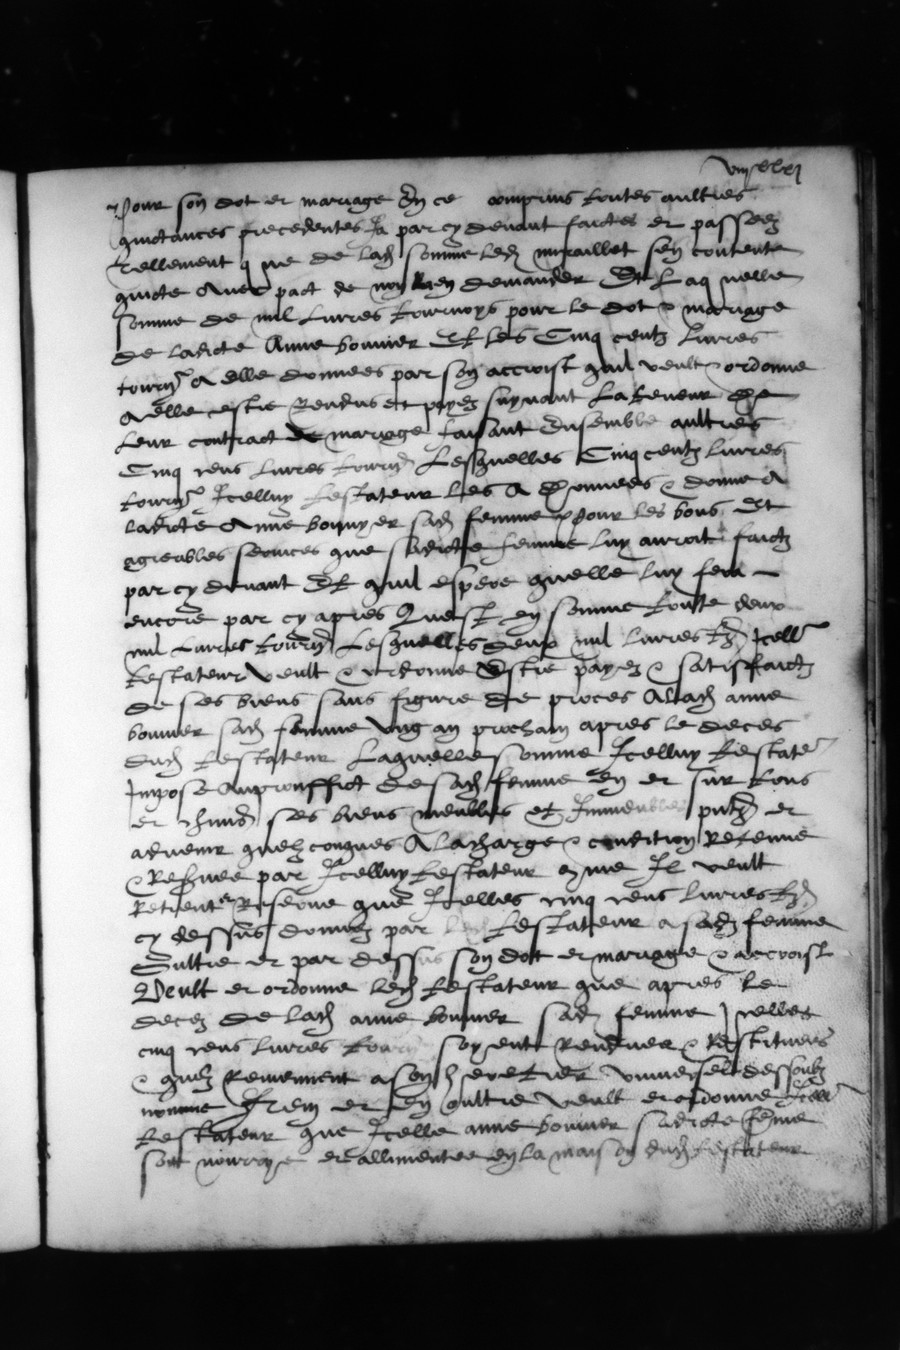 Pour son dot et mariage En ce comprins toutes aultres
quictances precedentes Ja par cy devant faictes et passees
tellement que de lad somme led miraillet sen contente
quicte Avec pact de non Rien demander Et Laquelle
somme de mil Livres tournoys pour le dot & mariage
de ladicte Anne bonnier Et les Cinq centz Livres
tourn A elle donnees par son accroist quil veult & ordonne
A elle estre Rendus et payez suyvant La teneur de
Leur contract de mariage faisant Ensemble aultres
Cinq cens Livres tourn Lesquelles Cinq centz Livres
tourn Icelluy testateur Les A Données & donne A
ladicte Anne bonnyer sad femme Pour les bons Et
agreables services que sadicte femme luy auroit faictz
par cy devant Et quil espere quelle luy fera
encore par cy apres Quest en somme toutte deux
mil Livres tourn Lesquelles deux mil Livres tz Icell
testateur veult & ordonne Estre payez & satisfaictz
de ses biens sans figure de proces A lad anne
bonnier sad femme Ung an prochain apres le deces
dud testateur Laquelle somme Icelluy testate
Impose Au prouffict de sad femme En et sur tous
et chuns ses biens meubles et Immeubles pntz et
advenir quelzconques A la charge & condition Retenue
& Reservee par Icelluy testateur comme Il veult
Retient et Reserve que Icelles cinq cens livres tz
cy dessus donnez par led testateur a sad femme
Oultre et par dessus son dot et mariage & accroist
Veult et ordonne led testateur que apres le
deces de lad anne bonnier sad femme Icelles
cinq cens livres tourn soyent Rendues & Restituees
& quelz Reviennent a son heretier universel dessoubz
nomme Item et en oultre veult et ordonne Icell
testateur que Icelle anne bonnier sadicte feme
soit nourrye et allimentee en la maison dud testateur